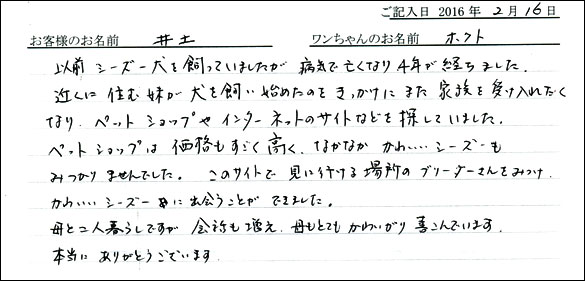 ご記入日 2016 年 2 月 16 日
お客様のお名前 井土 ワンちゃんのお名前 ホクト
以前 シーズー犬を飼っていましたが 病気で亡くなり 4年が経ちました。
近くに住む妹が犬を飼い始めたのをきっかけにまた家族を受け入れたく
なり、ペットショップやインターネットのサイトなどを探していました。
ペットショップは価格もすごく高く、なかなか かわいいシーズーも
みつかりませんでした。このサイトで見に行ける場所のブリーダーさんをみつけ、
かわいいシーズー に出会うことができました。
母と二人暮らしですが 会話も増え、母もとてもかわいがり喜こんでいます。
本当にありがとうございます。